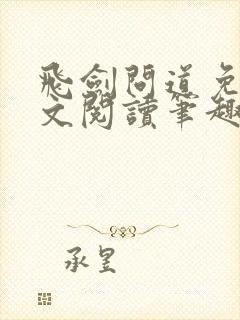 飛劍問道免
文閱讀筆趣
承昱